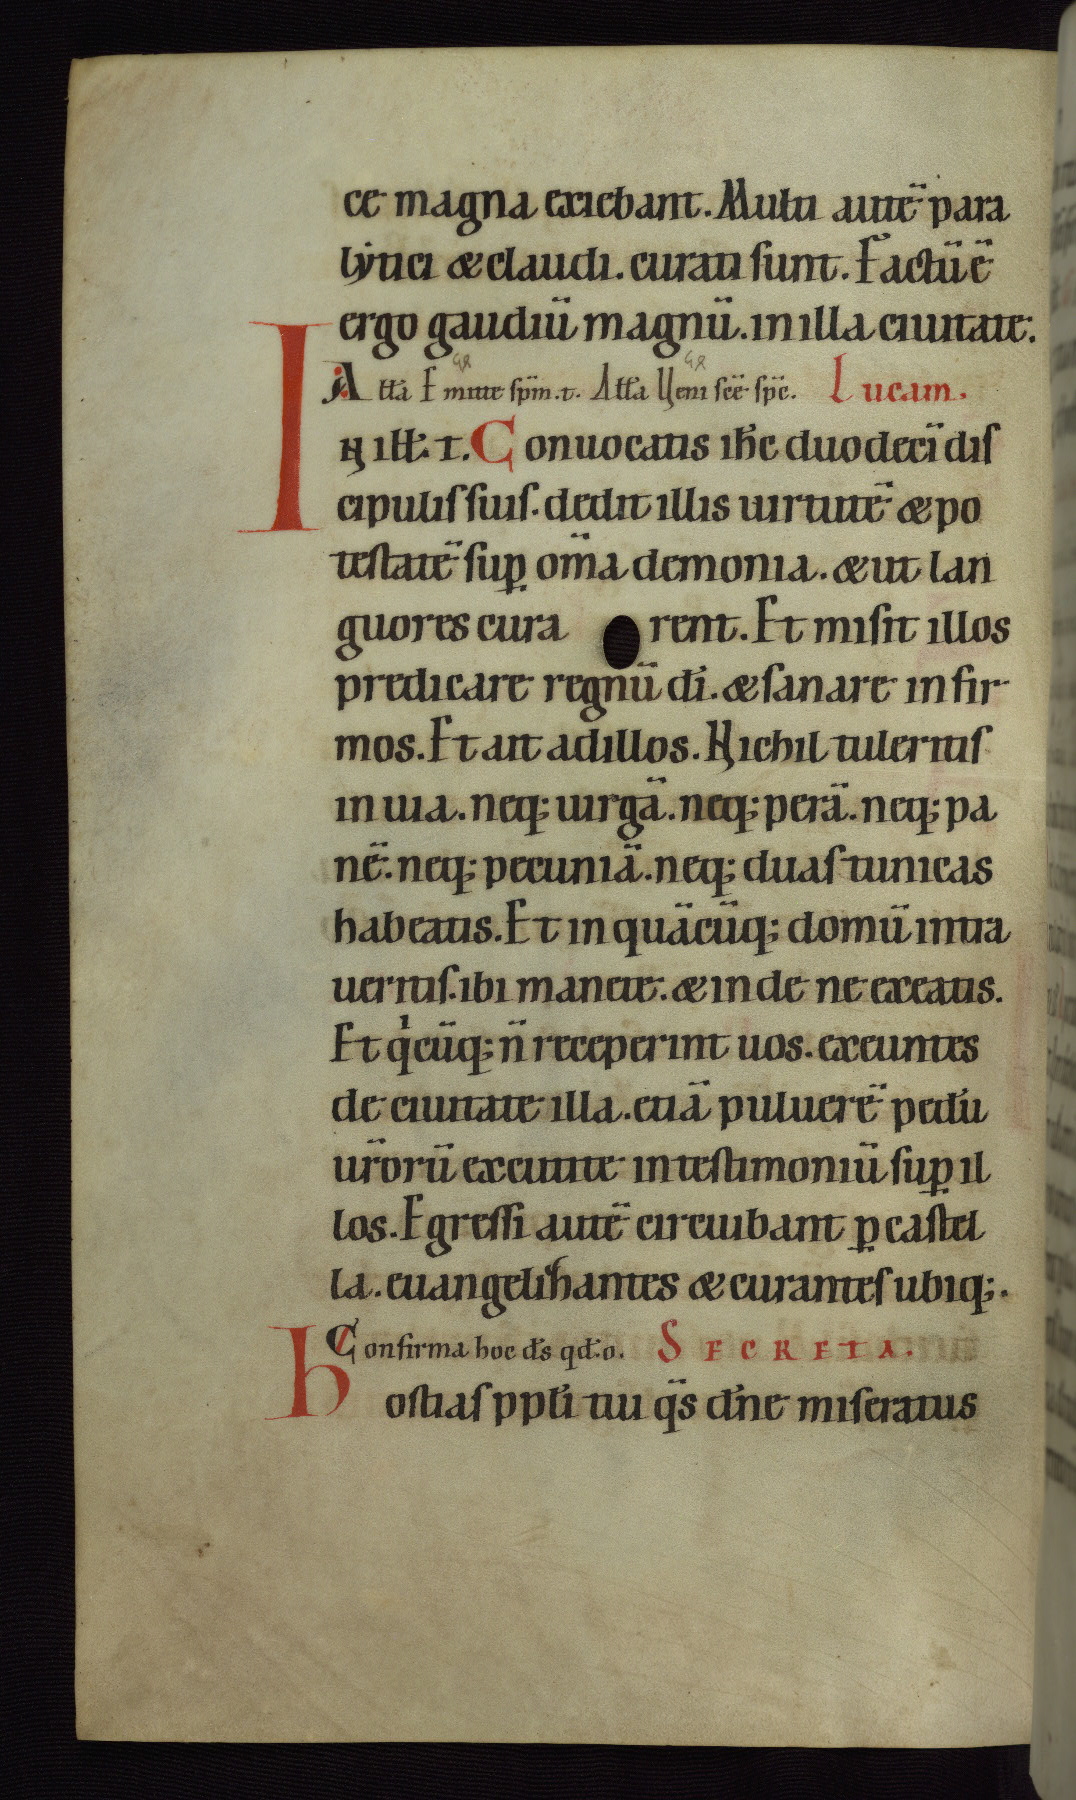 ce magna exiebant. Multi autē para
lytici & claudi. curati sunt. Factū ē
ergo gaudiū magnū. in illa ciuitate.
Atta Emitte spm̄.t. Atta Ueni scē spc̄. Lucam.
IN ILL̄. T. Conuocatis ihc duodecī dis
cipulis suis. dedit illis uirtutē & po
testatē sup om̄a demonia. & ut lan
guores cura rent. Et misit illos
predicare regnū dī. & sanare infir
mos. Et ait ad illos. Nichil tuleritis
in uia. neq; uirgā. neq; perā. neq; pa
nē. neq; pecuniā. neq; duas tunicas
habeatis. Et in quācūq; domū intra
ueritis. ibi manete. & inde ne exeatis.
Et qicūq; n̄ receperint uos. exeuntes
de ciuitate illa. etiā puluerē pedū
ur̄orū excutite in testimoniū sup il
los. Egressi autē circuibant p castel
la. euangelizantes & curantes ubiq;.
Confirma hoc ds̄ qd̄.o. SECRETA.
hostias ppl̄i tui qs̄ dn̄e miseratus